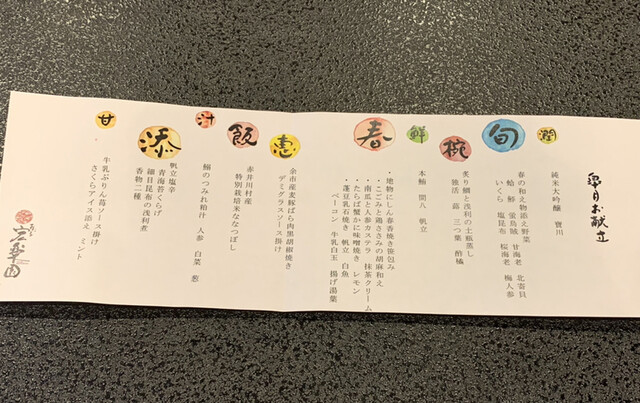 潤
純米大吟醸 寶川
旬
春の和え物添え野菜
蛤 鰺 蛍烏賊 甘海老 北寄貝
いくら 塩昆布 桜海老 梅人参
椀
炙り鯛と浅利の土瓶蒸し
独活 蕗 三つ葉 酢橘
鮮
本鮪 間八 帆立
春
・地物にしん春香焼き笹包み
・こごみと鶏ささみの胡麻和え
・南瓜と人参カステラ 抹茶クリーム
・たらば蟹かに味噌焼き レモン
・蓬豆乳石焼き 帆立 白魚
ベーコン 牛乳白玉 揚げ湯葉
恵
余市産麦豚ばら肉黒胡椒焼き
デミグラスソース掛け
飯
赤井川村産
特別栽培米ななつぼし
汁
鰯のつみれ粕汁 人参 白菜 葱
添
帆立塩辛
青海苔くらげ
細目昆布の浅利煮
香物二種
甘
牛乳ぷりん苺ソース掛け
さくらアイス添え ミント